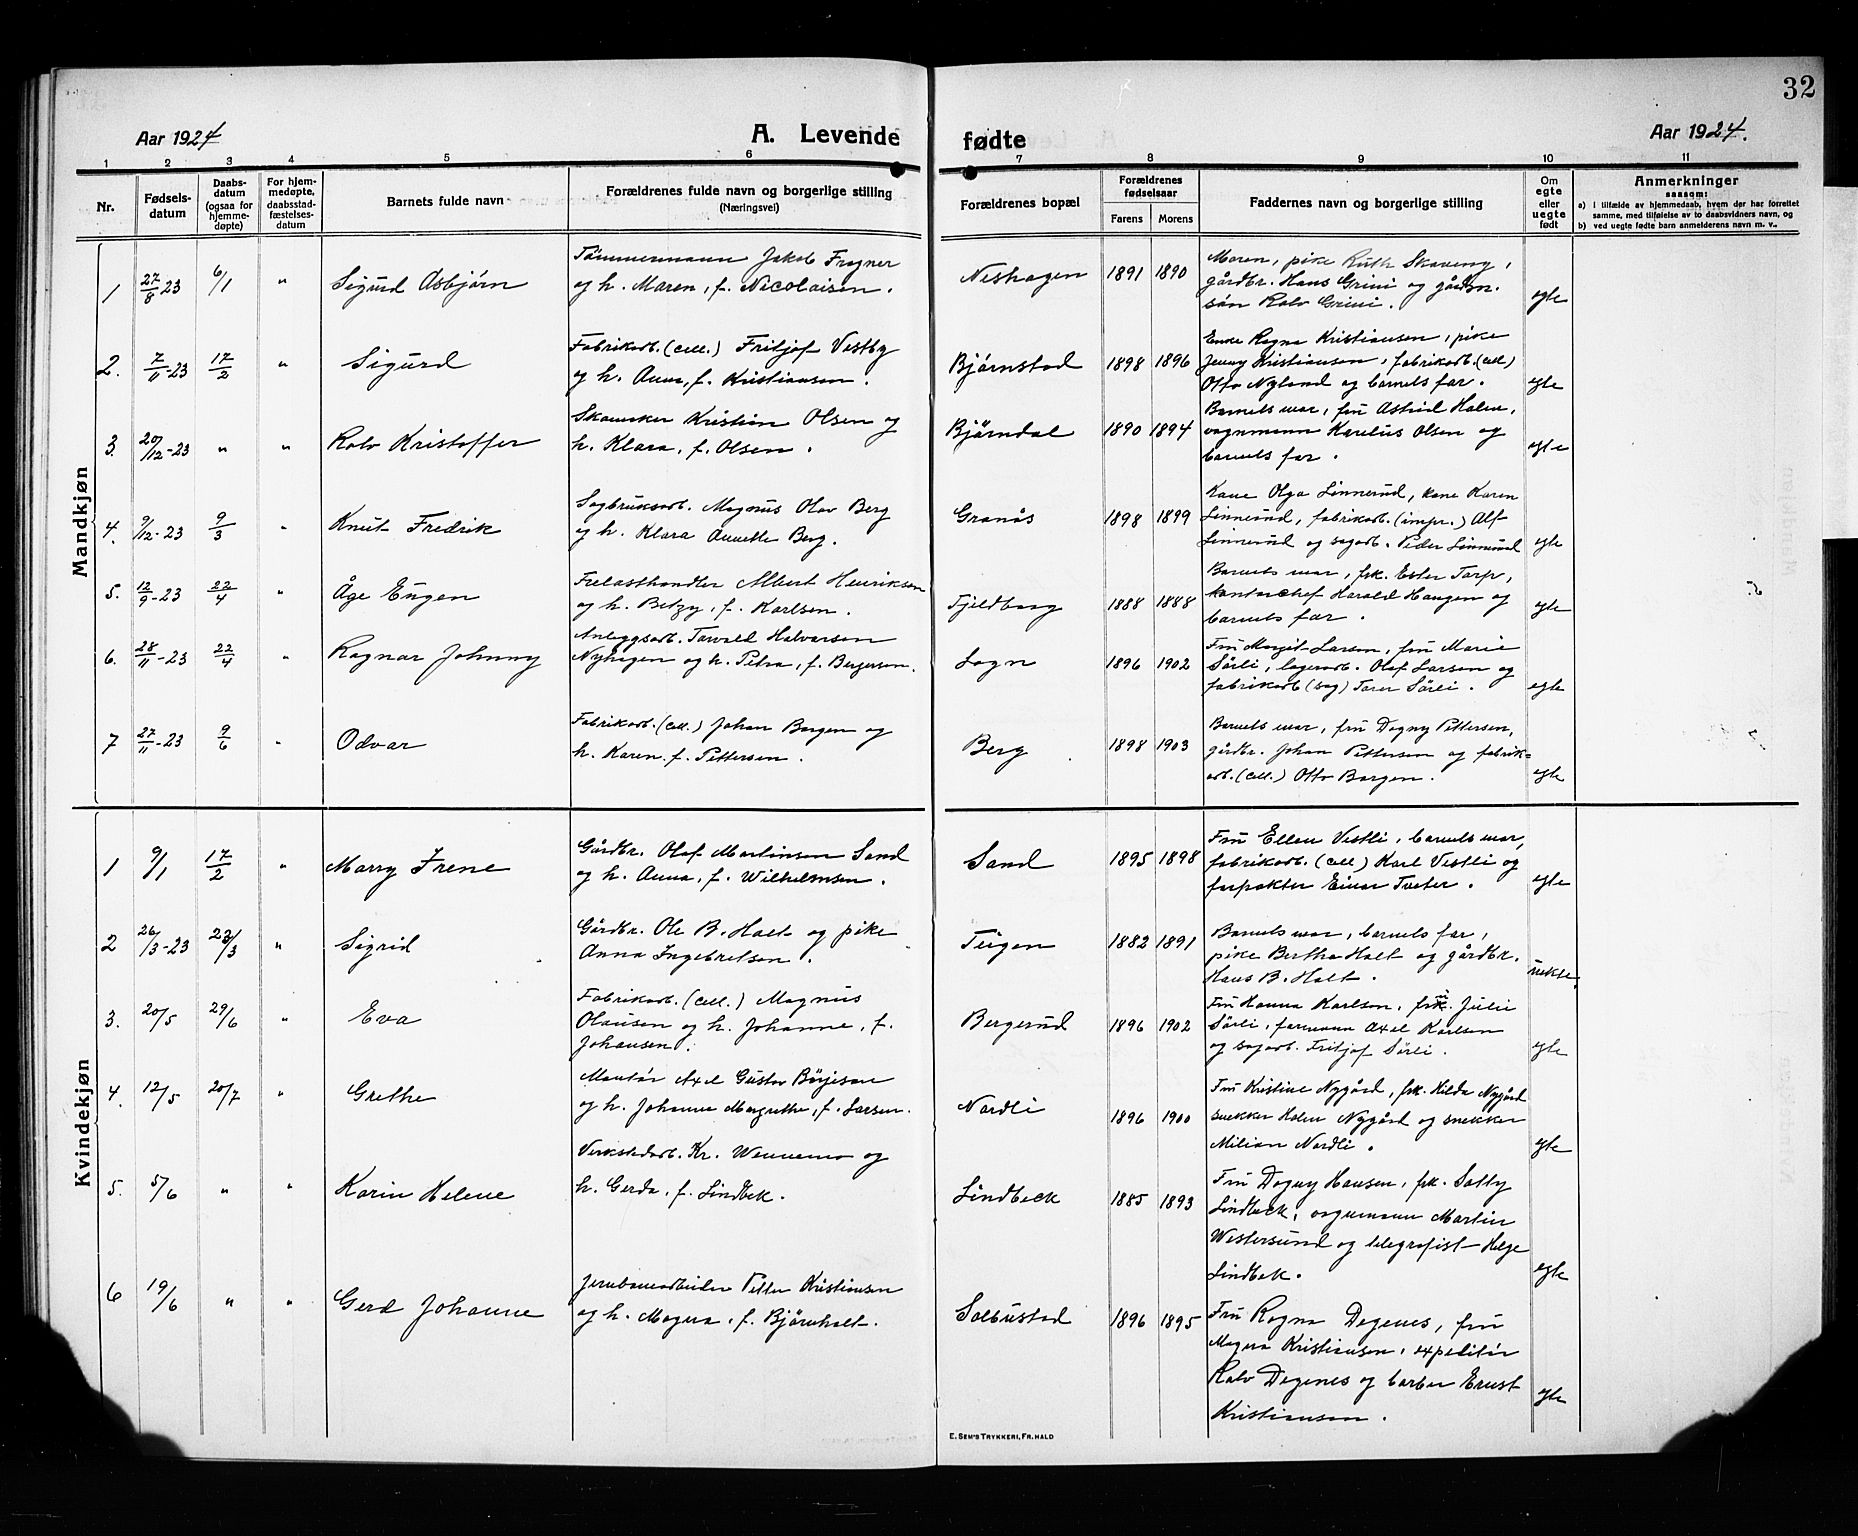 32
Aar 1924
A. Levende
fødte
Aar 1924.
1 2 3 4 5 6 7 8 9 10 11
Nr.
Fødsels-
datum
Daabs-
datum
(ogsaa for
hjemme-
døpte)
For hjem-
medøpte,
daabsstad-
fæstelses-
datum
Barnets fulde navn
Forældrenes fulde navn og borgerlige stilling
(Næringsvei)
Forældrenes bopæl
Forældrenes
fødselsaar
Farens Morens
Faddernes navn og borgerlige stilling
Om
egte
eller
uegte
født
Anmerkninger
saasom:
a) i tilfælde av hjemmedaab, hvem der har forrettet
samme, med tilføielse av to daabsvidners navn, og
b) ved uegte fødte barn anmelderens navn m. v..
Mandkjøn
1 27/8-23 6/1 " Sigurd Asbjørn
Tømmermann Jakob Frogner
og h. Maren, f. Nicolaisen.
Neshagen 1891 1890
Moren, pike Ruth Skaveng,
gårdbr. Hans Grini og gårdm.
søn Rolv Grini.
egte
2. 7/11-23 17/2 " Sigurd
Fabrikarb. (cell.) Fritjof Vestby
og h. Anna, f. Kristiansen.
Bjørnstad 1898 1896
Enke Ragna Kristiansen, pike
Jenny Kristiansen, fabrikarb. (cell)
Otto Nyland og barnets far.
egte
3. 20/12-23 " " Rolv Kristoffer
Skomaker Kristian Olsen og
h. Klara, f. Olsen.
Bjørndal 1890 1894
Barnets mor, fru Astrid Holm,
vognmann Karelius Olsen og
barnets far.
egte
4. 9/12-23 9/3 " Knut Fredrik
Sagbruksarb. Magnus Olav Berg
og h. Klara Annette Berg.
Granås 1898 1899
Kone Olga Linnerud, kone Karen
Linnerud, fabrikarb. (impr.) Alf
Linnerud og sagarb. Peder Linnerud
egte
5. 12/9-23 22/4 " Åge Eugen
Frelasthandler Albert Henriksen
og h. Betzy, f. Karlsen.
Fjeldborg 1888 1888
Barnets mor, frk. Ester Torp,
kontorchef Harald Haugen og
barnets far.
egte
6. 28/11-23 22/4 " Ragnar Johnny
Anleggsarb. Torvald Halvorsen
Nyhagen og h. Petra, f. Bergersen.
Sogn 1896 1902
Fru Margit Larsen, fru Marie
Sørli, lagerarb. Olaf Larsen og
fabrikarb (sag) Torer Sørli.
egte
7 27/11-23 9/6 " Odvar
Fabrikarb. (cell.) Johan Borgen og
h. Karen. f. Pettersen.
Berg 1898 1903
Barnets mor, fru Dagny Pettersen,
gårdbr. Johan Pettersen og fabrik-
arb. (cell.) Otto Borgen.
egte
Kvindekjøn
1 9/1 17/2 " Marry Irene
Gårdbr. Olaf Martinsen Sand
og h. Anna, f. Wilhelmsen.
Sand 1895 1898
Fru Ellen Vestli, barnets mor,
fabrikarb. (cell) Karl Vestli og
forpakter Einar Tveter.
egte
2 26/3-23 23/3 " Sigrid
Gårdbr. Ole B. Holt og pike
Anna Ingebretsen.
Teigen 1882 1891
Barnets mor, barnets far,
pike Bertha Holt og gårdbr.
Hans B. Holt.
uekte.
3. 20/5 29/6 " Eva
Fabrikarb. (cell.) Magnus
Olausen og h. Johanne, f.
Johansen.
Bergerud 1896 1902
Fru Hanna Karlsen, fru Julie
Sørli, formann Axel Karlsen
og sagarb. Fritjof Sørli.
egte
4. 12/5 20/7 " Grethe
Montør Axel Gustav Börjeson
og h. Johanne Margrethe, f. Larsen.
Nordli 1896 1900
Fru Kristine Nygård, frk. Hilda Nygård
snekker Holm Nygård og snekker
Milian Nordli.
egte
5. 5/6 " " Karin Helene
Verkstedarb. Kr. Wennemo og
h. Gerda, f. Lindbek.
Lindbeck 1885 1893
Fru Dagny Hansen, frk. Solly
Lindbeck, vognmann Martin
Westersund og telegrafist Helge
Lindbek.
egte
6 19/6 " " Gerd Johanne
Jernbanearbeider Petter Kristiansen
og h. Magna, f. Bjørnholt.
Solbustad 1896 1895
Fru Ragna Degenes, fru
Magna Kristiansen, expeditør
Rolv Degenes og barber Ernst
Kristiansen.
egte
E. SEM'S TRYKKERI, FR. HALD